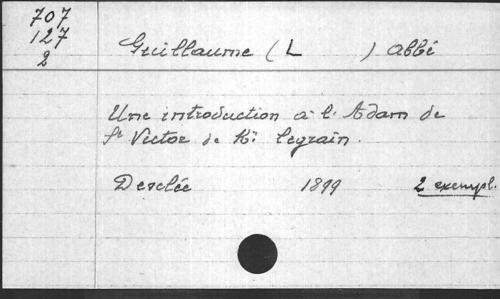 707
127
2
Guillaume (L ) abbé
Une introduction à l. Adam de
St Victor de Kr. legrain.
Desclée 1899 2 exempl.